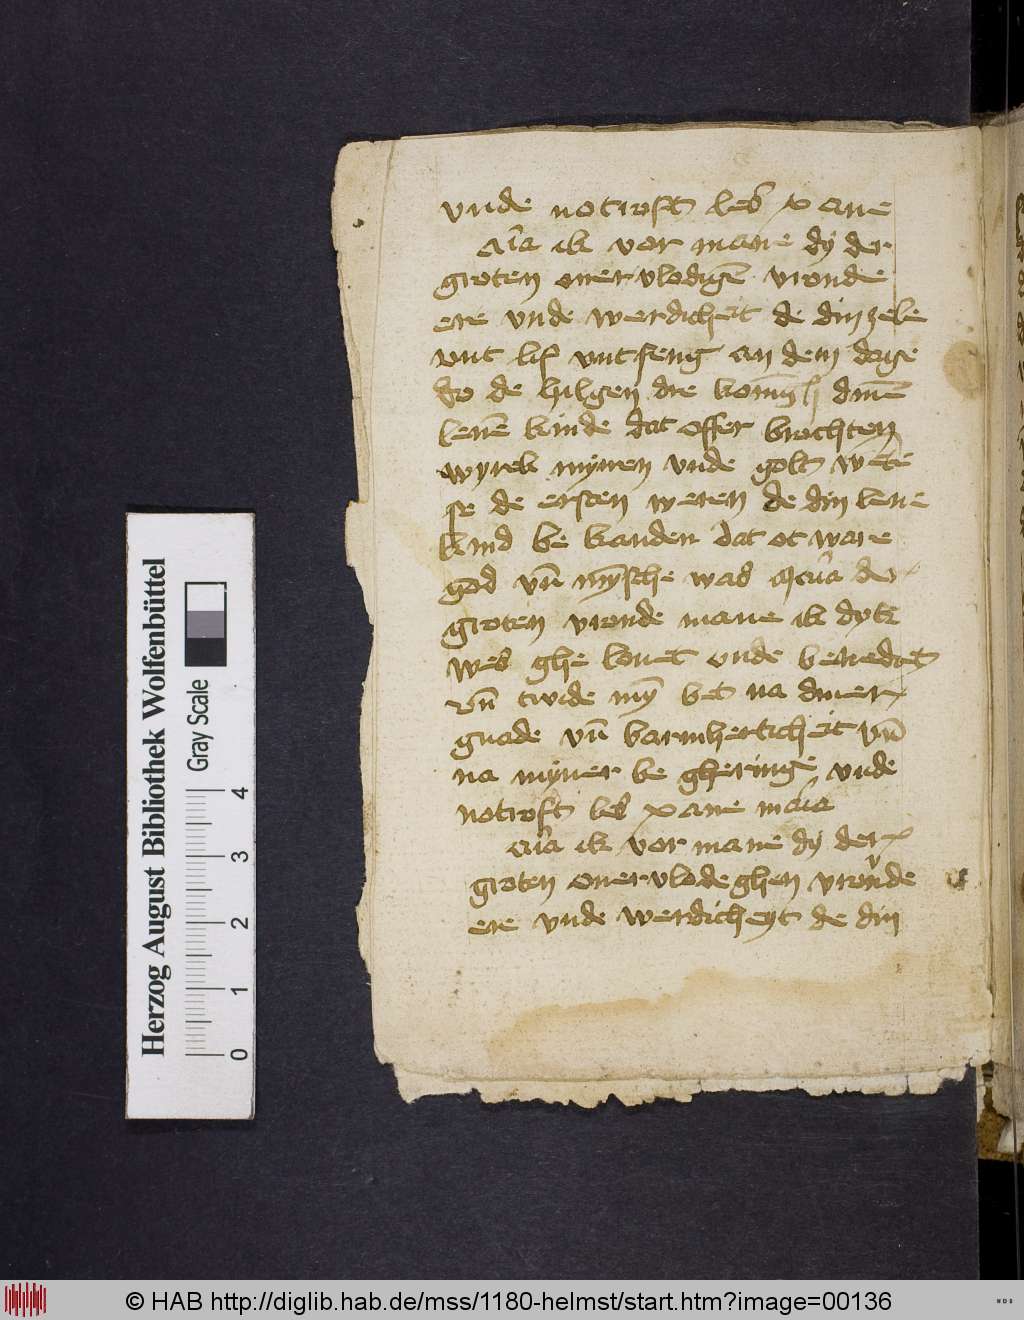 vnde notroft les x aue
a͞ia ik vor mane dy der
groten ouer vlodige͞ vronde
ere vnde werdicheit de din zele
vnt lif vntfeng an dem dage
do de hilgen dre koni͞gh dine͞
leue͞ kinde dat offer brochten
wyrek myrren vnde golt wete
se de ersten weren de din leue
kind be kanden dat ot ware
god vn͞ my͞sche was Ma͞ia der
groten vronde mane ik dyk
wes ghe louet vnde benedat
vn͞ twide my͞ bet na diner
gnade vn͞ barmherticheit vn͞
na myner be gheringe vnde
notroft les x aue ma͞ia
a͞ia ik vor mane dy der
groten ouervlodeghen vronde
ere vnde werdicheyt de din
Herzog August Bibliothek Wolfenbüttel
Gray Scale
0 1 2 3 4
© HAB http://diglib.hab.de/mss/1180-helmst/start.htm?image=00136